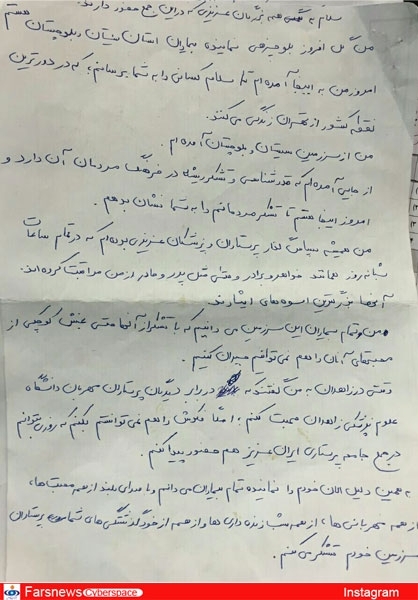 سلام به همه بزرگان عزیزی که در این جمع حضور دارند.
من گل افروز بلوچزهی نماینده بیماران استان سیستان و بلوچستان هستم
امروز من به اینجا آمده ام تا سلام کسانی را به شما برسانم، که در دورترین
نقطه کشور از تهران زندگی می کنند.
من از سرزمین سیستان و بلوچستان آمده ام.
از جایی آمده ام که قدرشناسی و تشکر ریشه در فرهنگ مردمان آن دارد و
امروز اینجا هستم تا تشکر مردمانم را به شما نشان بدهم.
من همیشه سپاس گذار پرستاران و پزشکان عزیزی بوده ام که در تمام ساعات
شبانه روز همانند خواهر و برادر و حتی مثل پدر و مادر از من مراقبت کرده اند.
آنها بزرگترین اسوه های ایثارند.
من و تمام بیماران این سرزمین می دانیم که با تشکر از آنها حتی بخش کوچکی از
محبتهای آنان را هم نمی توانیم جبران کنیم.
وقتی در زاهدان به من گفتند که در برابر دیدگان پرستاران مهربان دانشگاه
علوم پزشکی زاهدان صحبت کنم؛ اصلا فکرش را هم نمی توانستم بکنم که روزی بتوانم
در جمع جامعه پرستاری ایران عزیز هم حضور پیدا کنم.
به همین دلیل الان خودم را نماینده تمام بیماران می دانم و با صدای بلند از همه محبت ها،
از همه مهربانی ها، از همه شب زنده داری ها و از همه از خود گذشتگی های تمام پرستاران
سرزمین خودم تشکر می کنم.
Farsnews Cyberspace Instagram